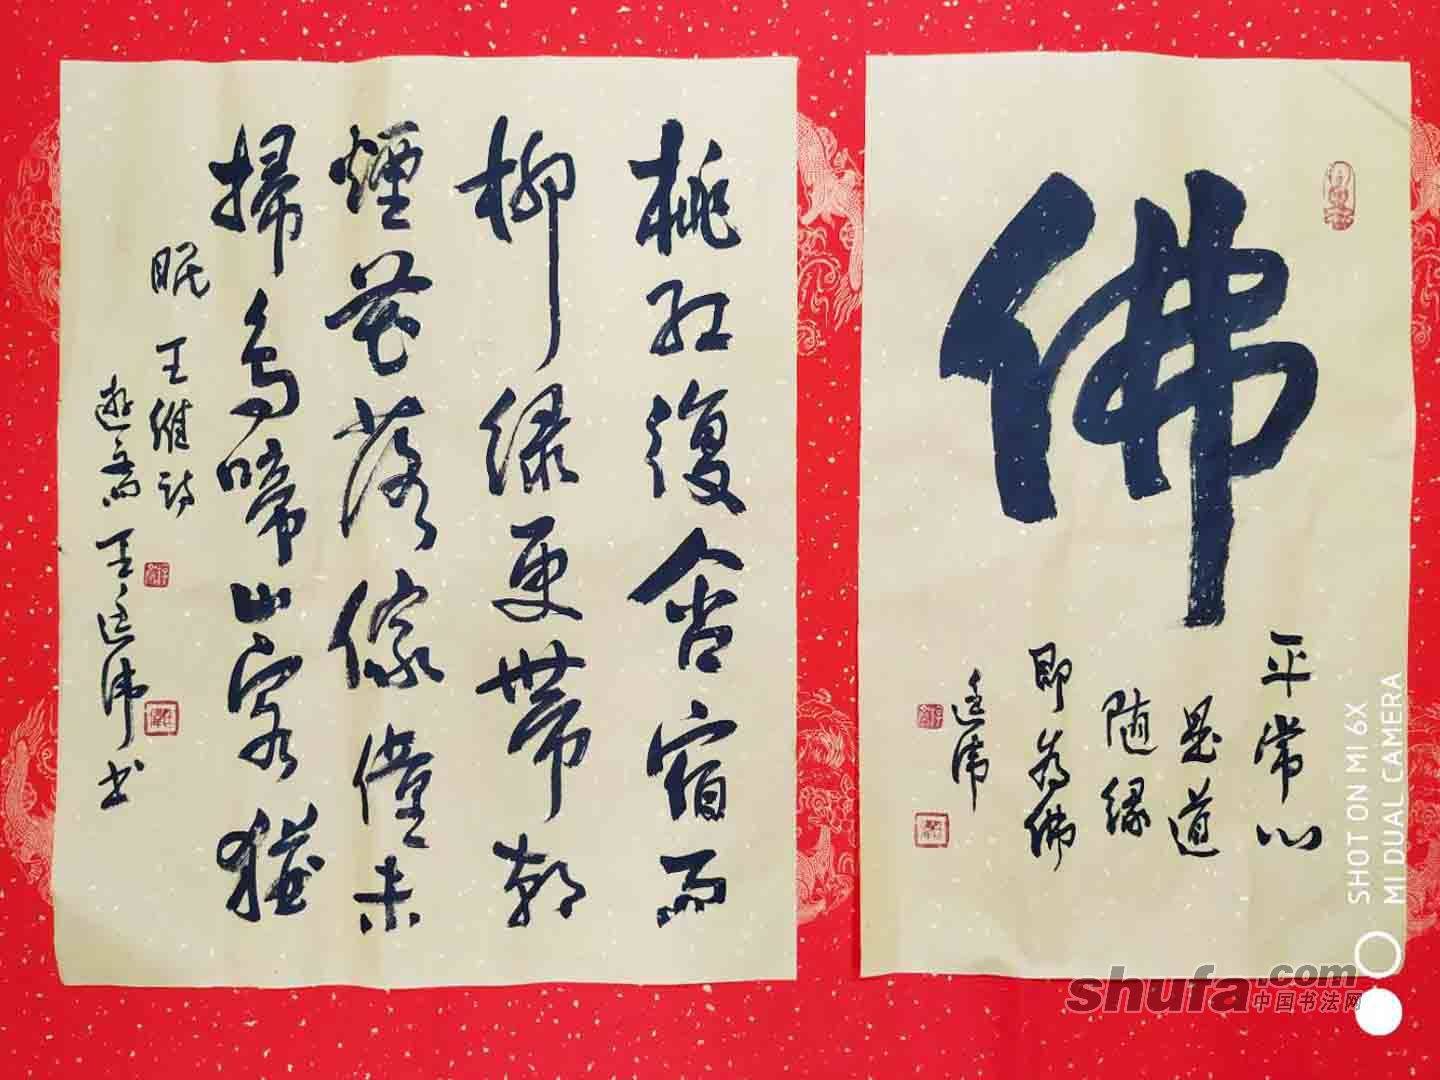 佛
平常心
是道
随缘
即为佛
桃红復含宿雨
柳绿更帶朝
煙花落傢僮未
掃鸟啼山客猶
眠 王维诗
王 书
SHOT ON MI 6X
MI DUAL CAMERA
shufa.com
中国书法网